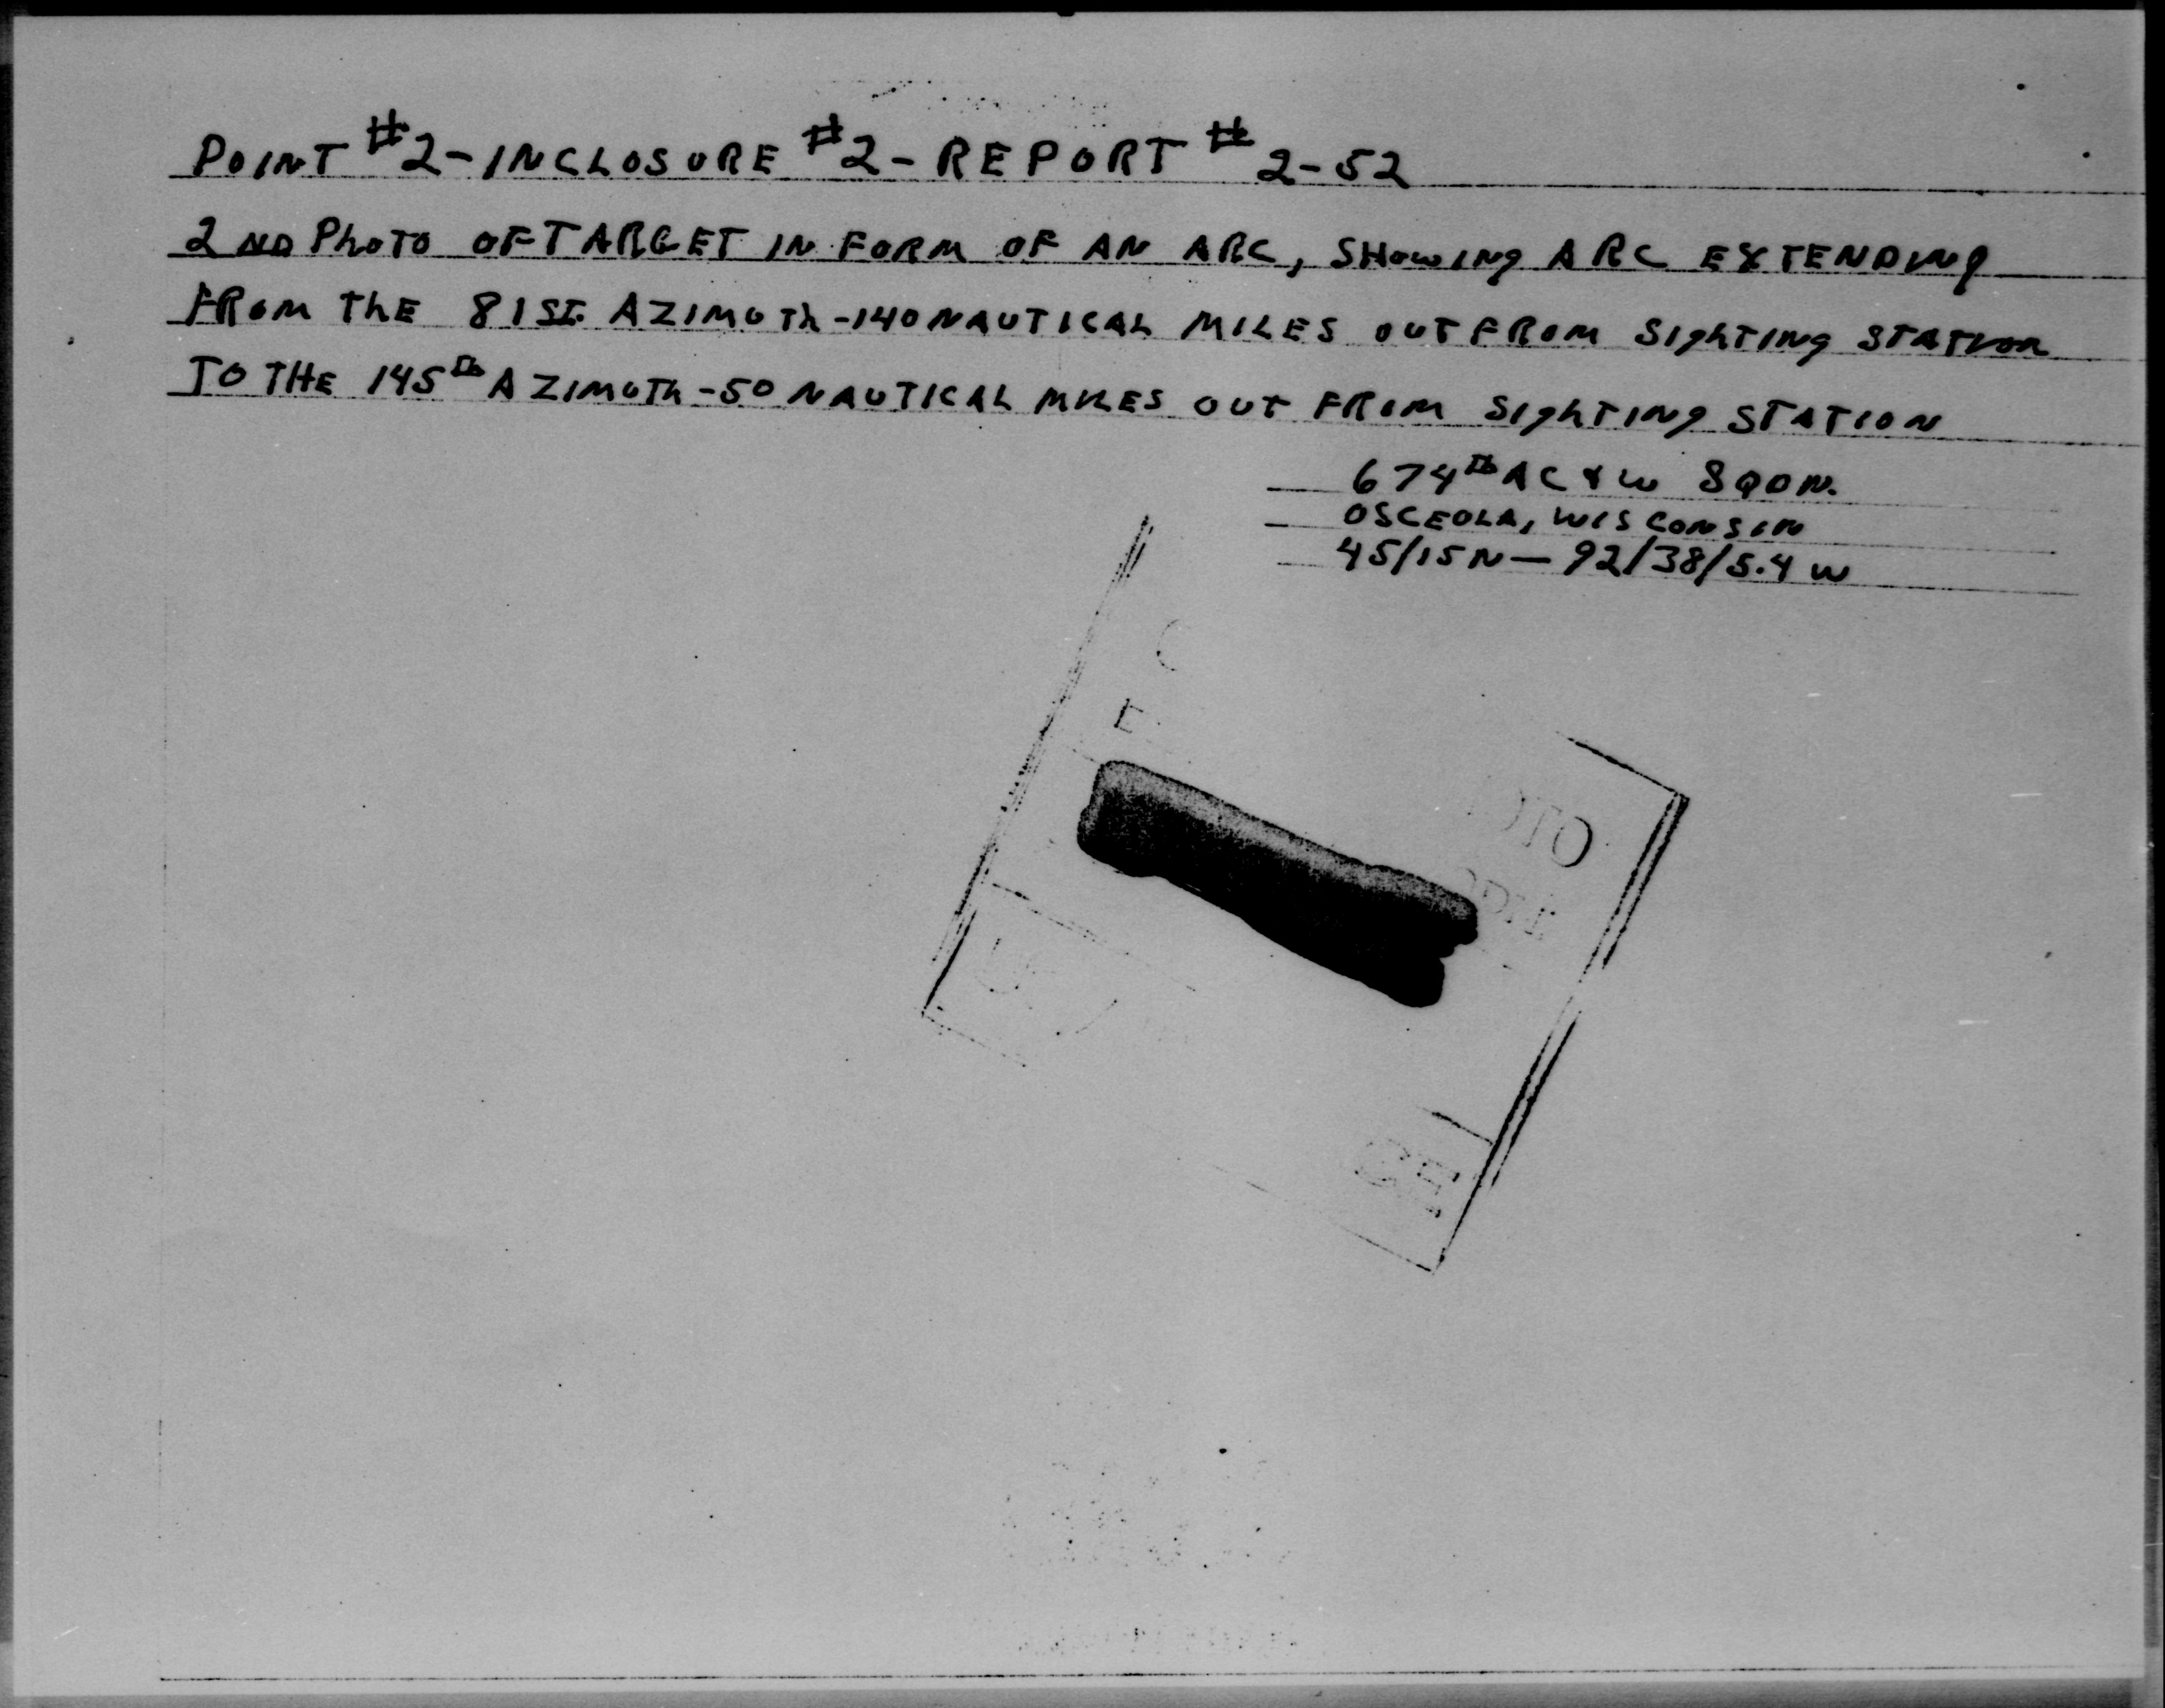 POINT #2-INCLOSURE #2-REPORT # 2-52
2ND PHOTO OF TARGET IN FORM OF AN ARC, SHOWING ARC EXTENDING
FROM THE 81ST AZIMUTH-140 NAUTICAL MILES OUT FROM SIGHTING STATION
TO THE 145TH AZIMUTH-50 NAUTICAL MILES OUT FROM SIGHTING STATION
674TH AC & W SQDN.
OSCEOLA, WISCONSIN
45/15N — 92/38/5.4 W